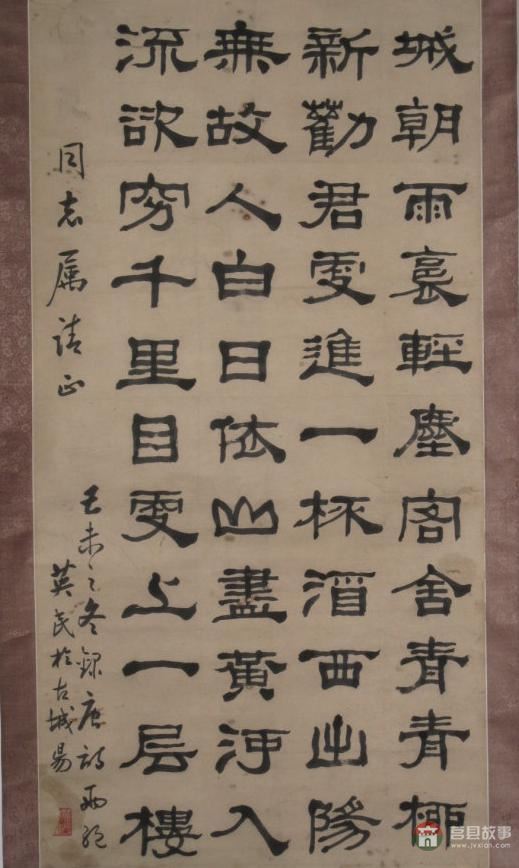 城朝雨裛輕塵客舍青青柳
新勸君更進一杯酒西出陽
無故人白日依山盡黃河入
流欲穷千里目更上一层樓
同志属请正
己未之冬録唐诗两绝
英民於古城易
莒县故事
www.jvxian.com